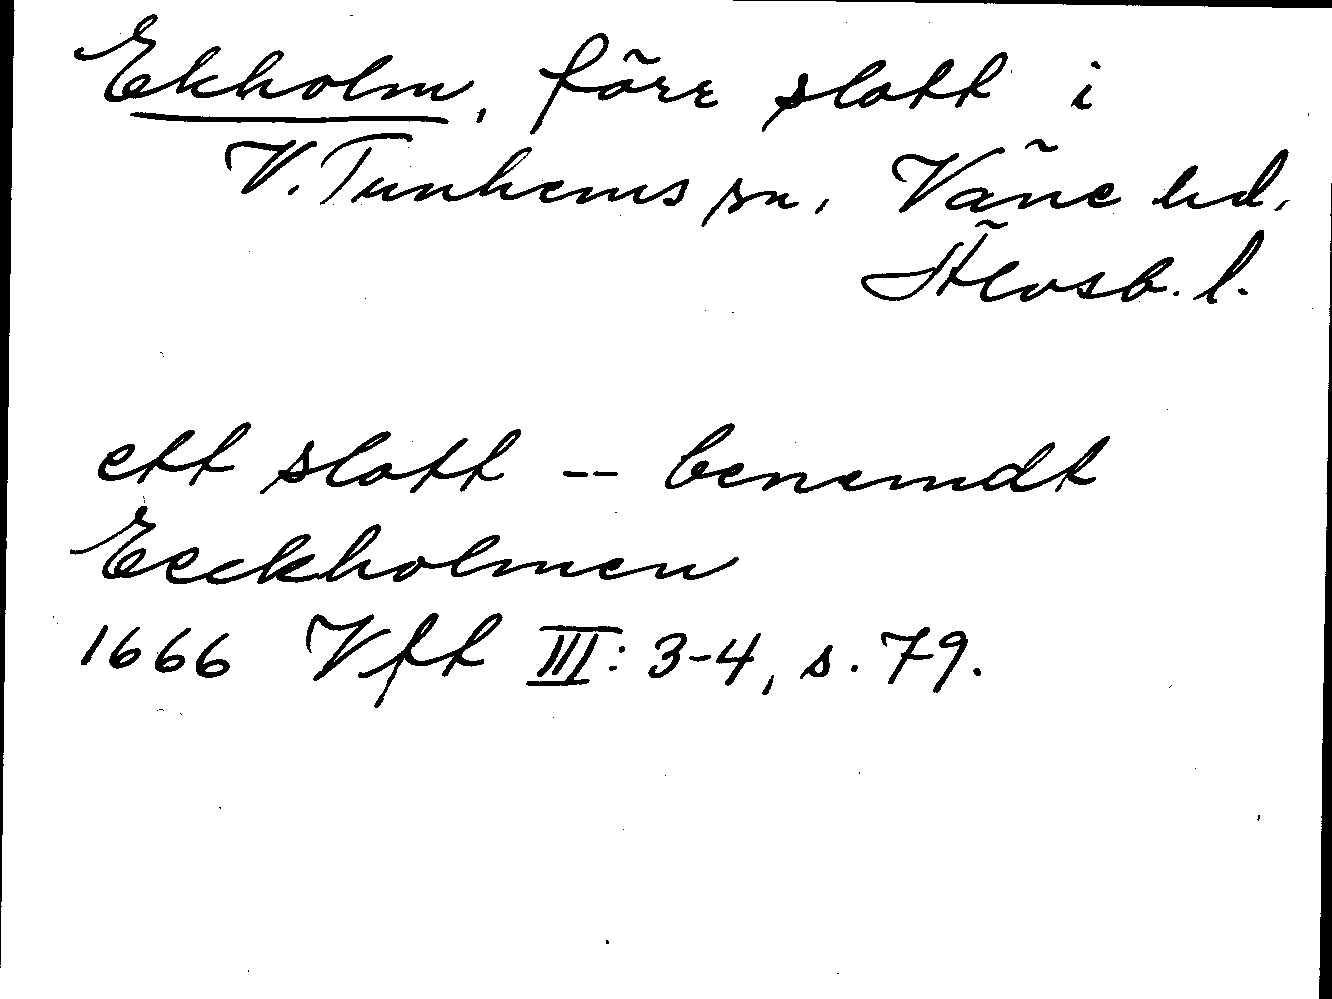 Ekholm, förr slott i
V. Tunhems sn, Väne hd,
Älvsb. l.
ett slott -- benemdt
Eeckholmen
1666 Vft III: 3-4, s. 79.